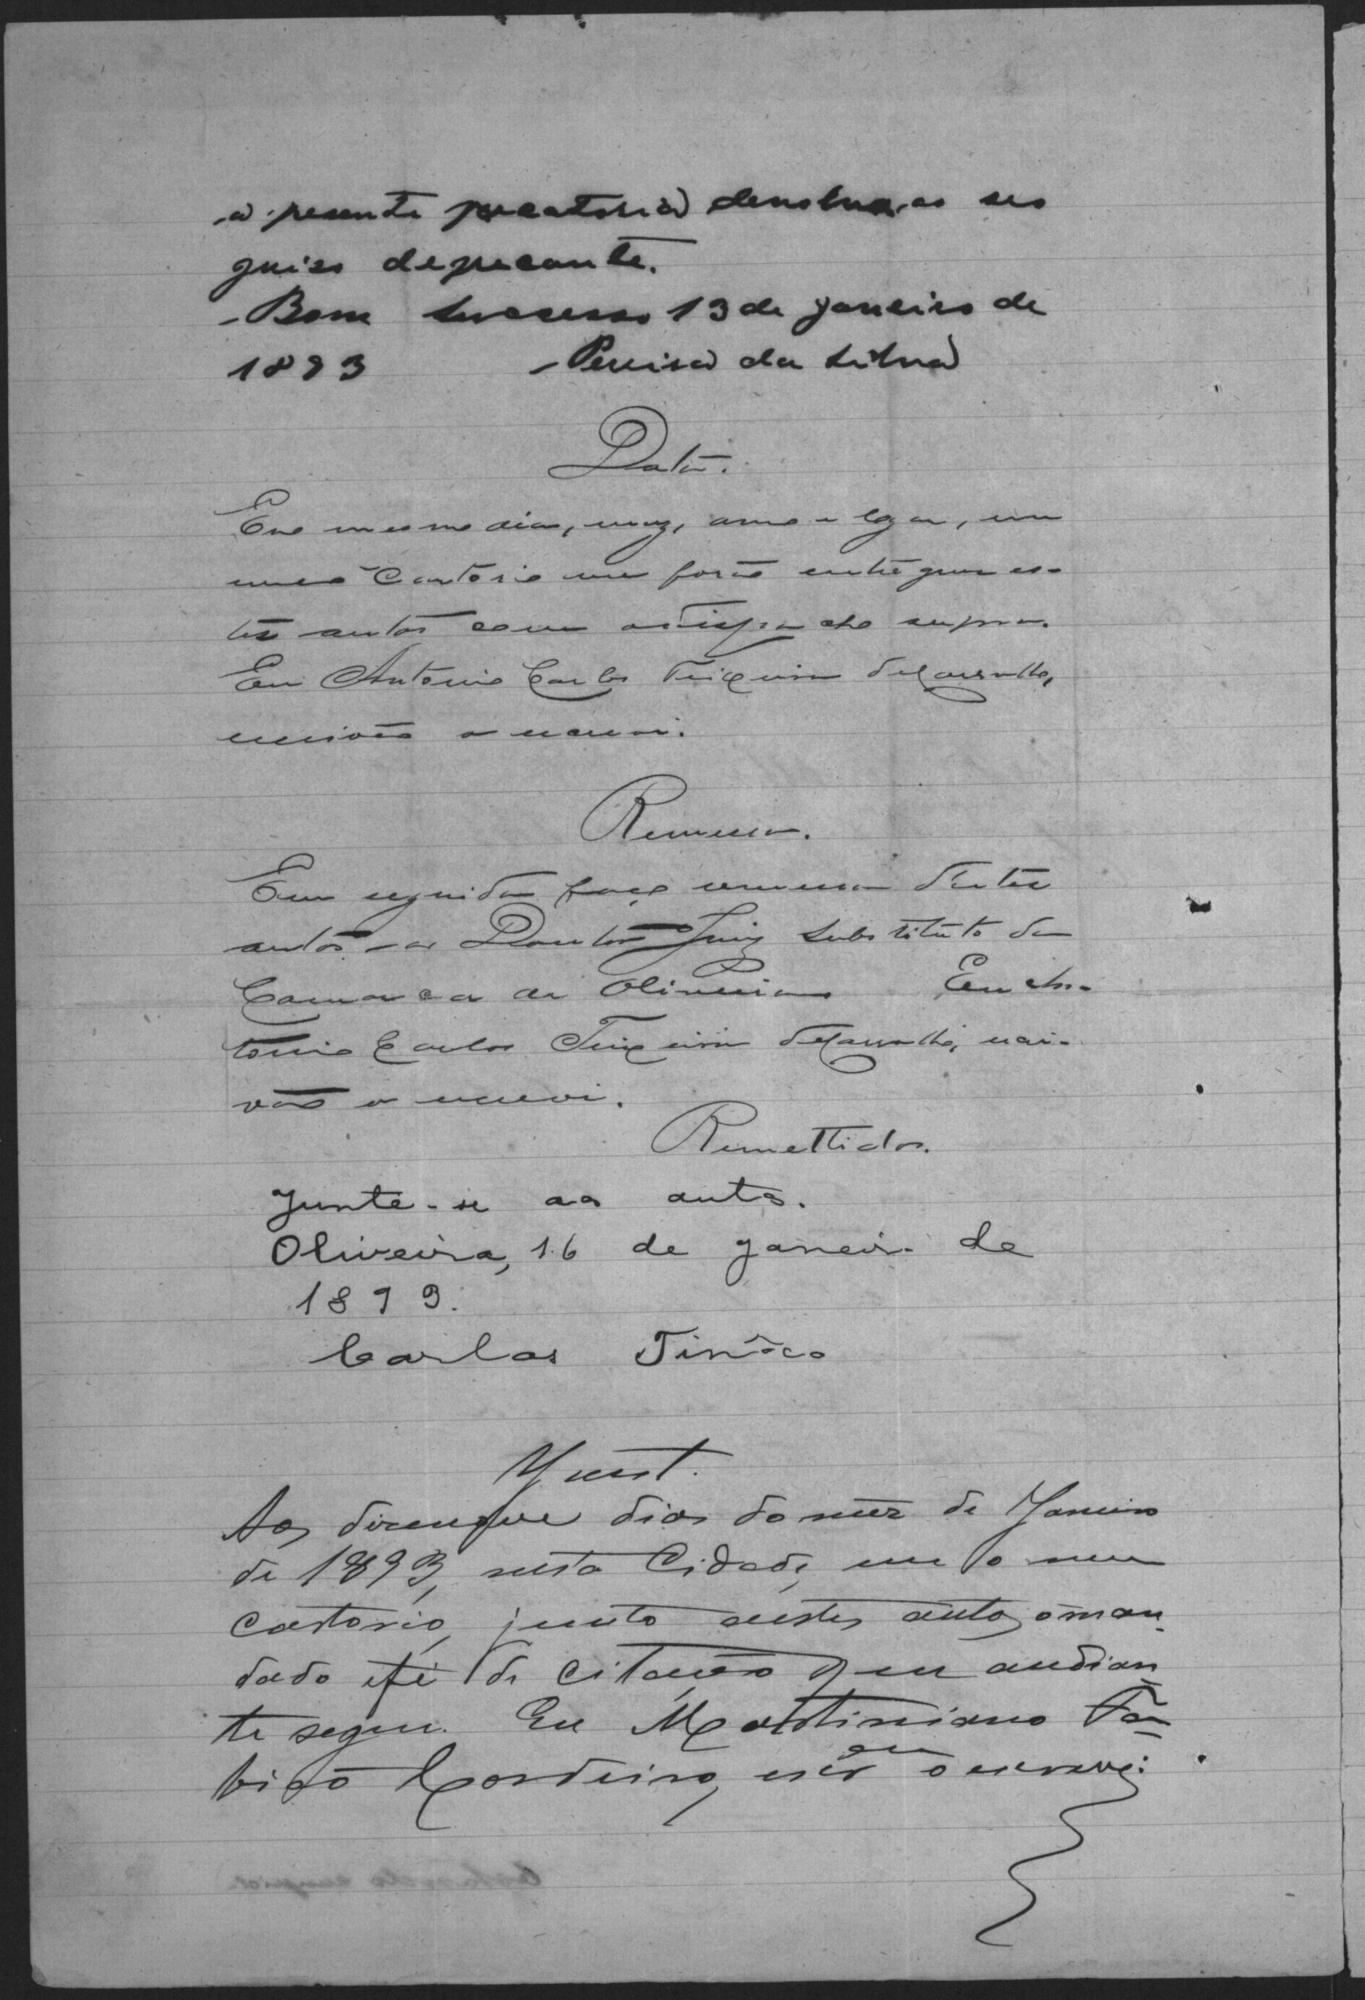 a presente precatoria devolva, ao seo
juizo deprecante.
Bom Successo 13 de janeiro de
1893 Pereira da Silva
Data.
Em o mesmo dia, mez, anno e logar, em
meu Cartorio me forão entregues es-
tes autos com o despacho supra.
Eu Antonio Carlos Teixeira de Carvalho,
escrivão o escrevi.
Remessa.
Em seguida faço remessa destes
autos ao Doutor Juiz Substituto da
Comarca de Oliveira Eu An-
tonio Carlos Teixeira de Carvalho, escri-
vão o escrevi.
Remettidos.
Junte-se aos autos.
Oliveira, 16 de janeiro de
1893.
Carlos Tinôco
Junt.
Aos dias do mez de Janeiro
de 1893, nesta Cidade, em o meu
cartorio, junto a estes autos o man-
dado e fé de citação que adian-
te segue. Eu Martiniano Fa-
bião Cordeiro, escr o escrevi.